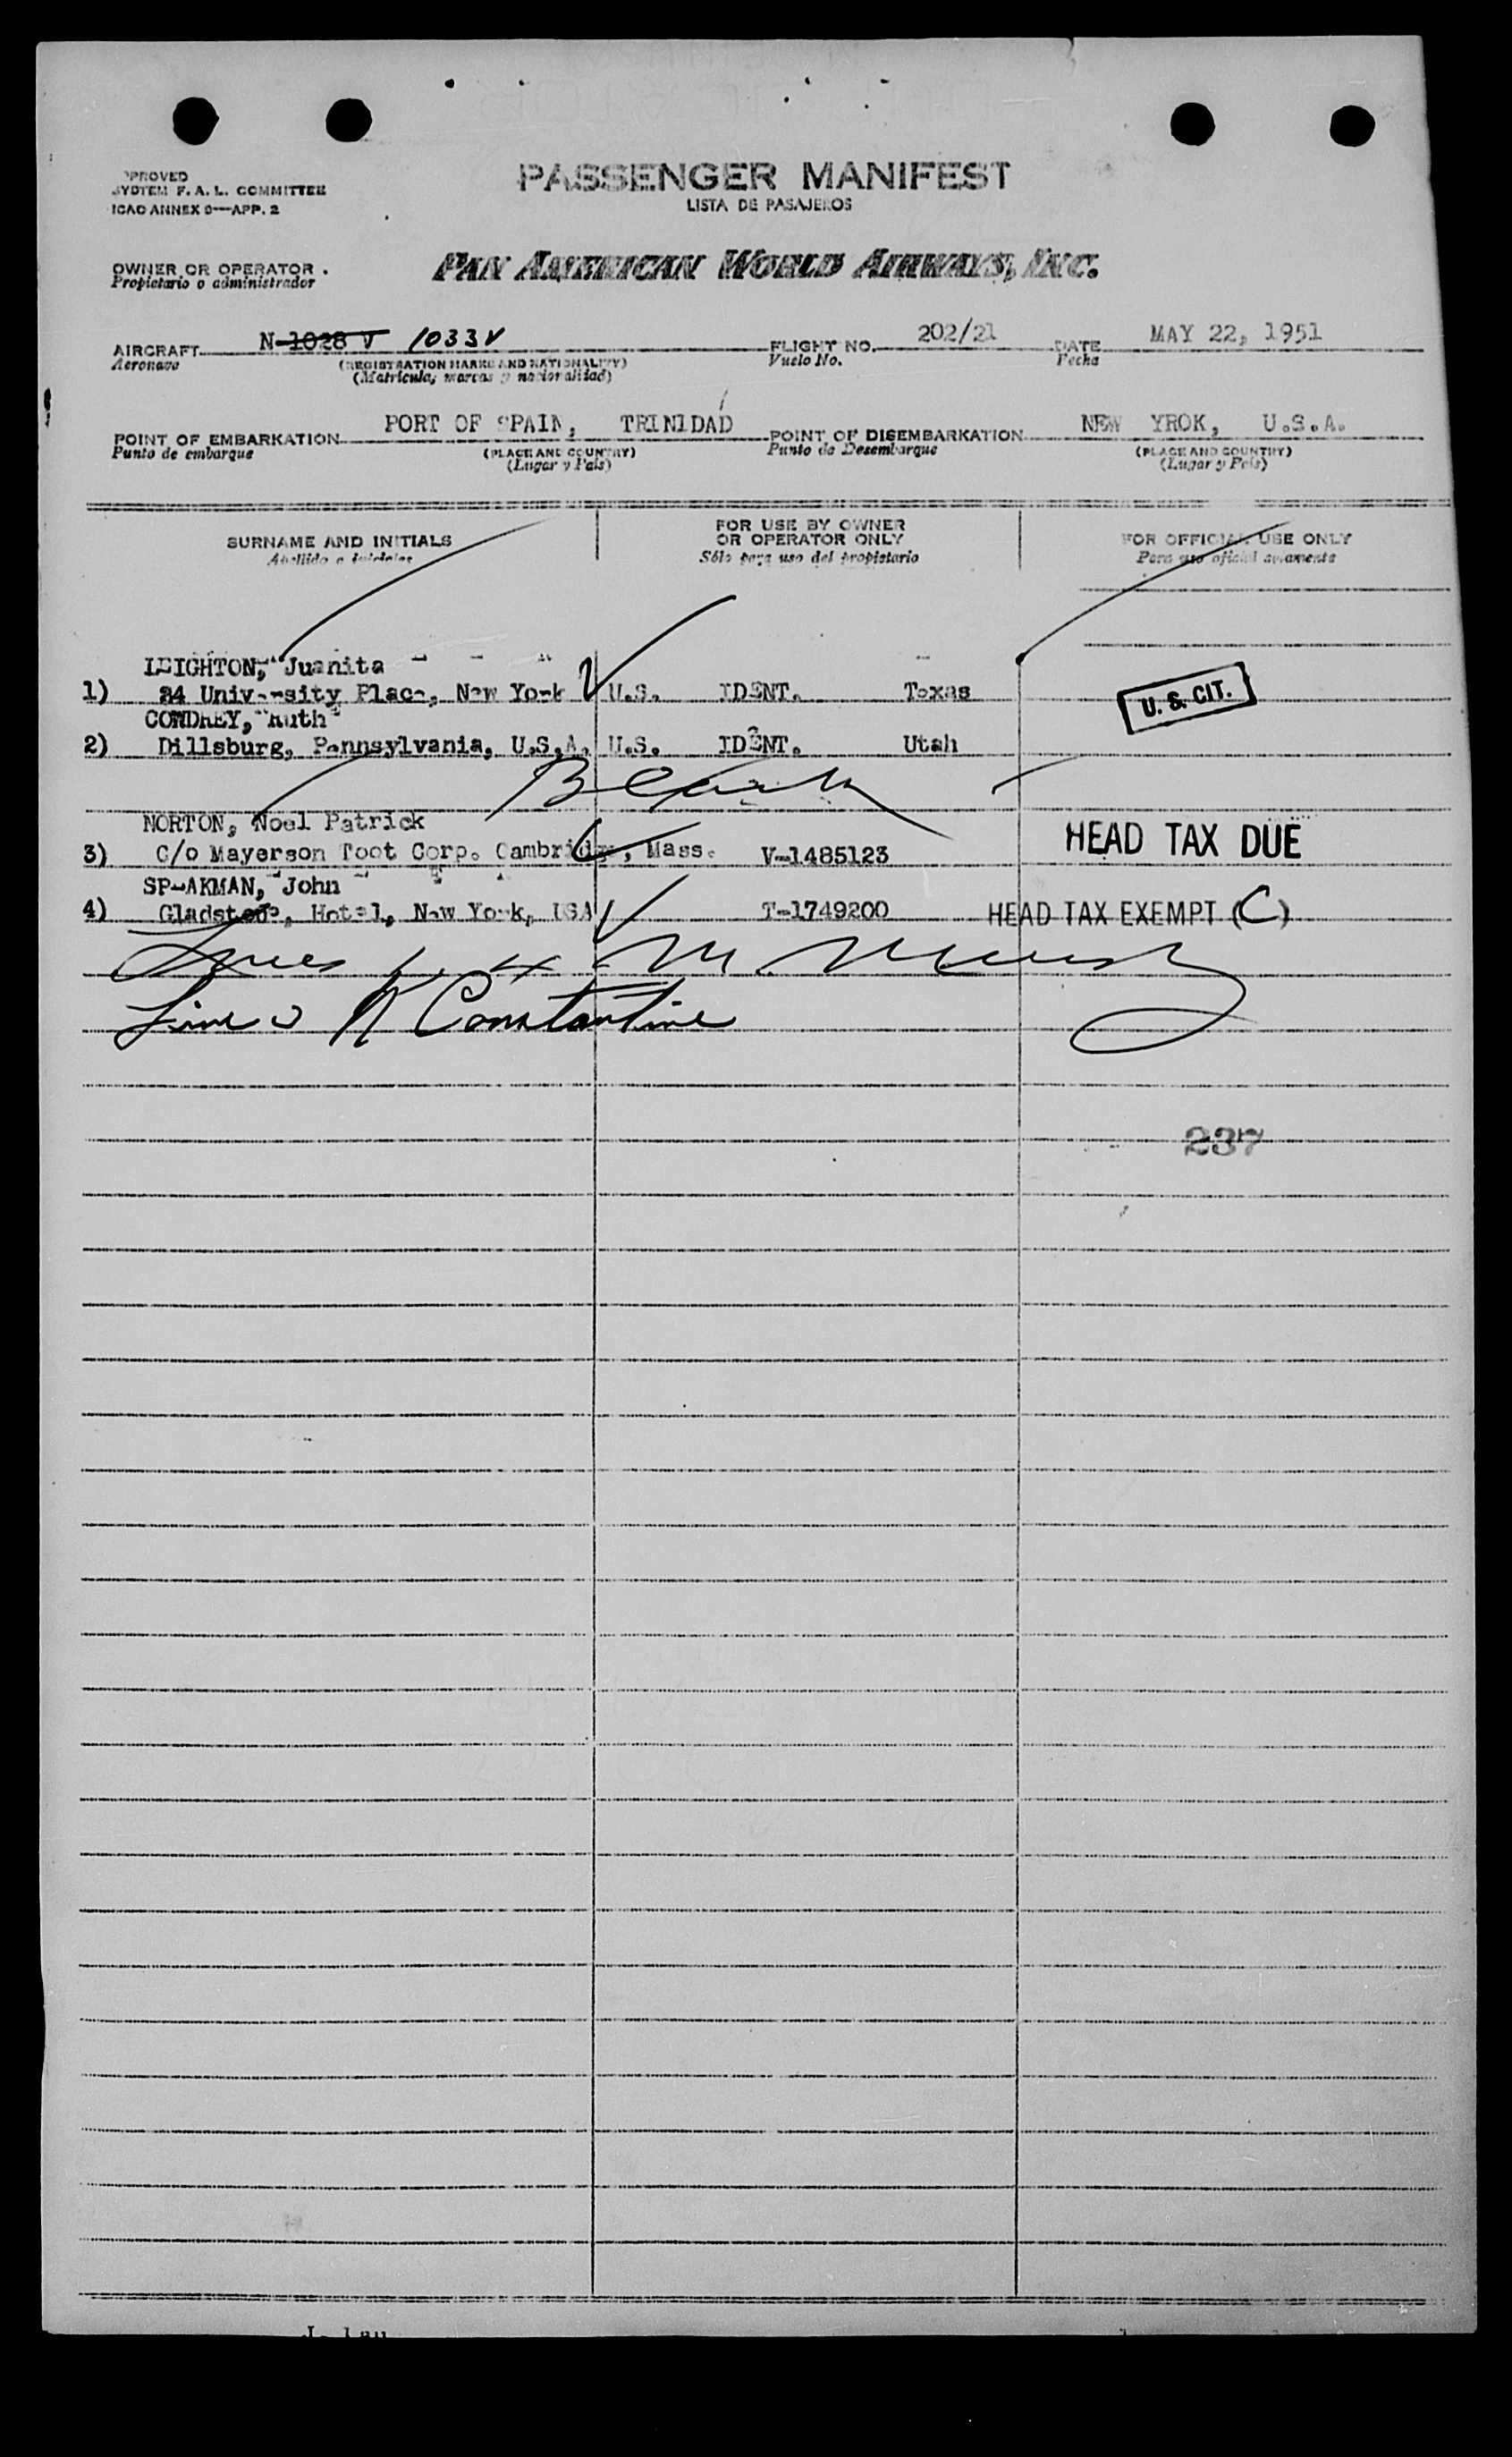 PASSENGER MANIFEST
LISTA DE PASAJEROS
F. A. L. COMMITTEE
ICAO ANNEX 9—APP. 2
PAN AMERICAN WORLD AIRWAYS, INC.
OWNER OR OPERATOR
Propietario o administrador
AIRCRAFT N-1028 V 1033V FLIGHT NO. 202/21 DATE MAY 22, 1951
Aeronave (REGISTRATION MARKS AND NATIONALITY) Vuelo No. Fecha
(Matricula, marcas y nacionalidad)
POINT OF EMBARKATION PORT OF SPAIN, TRINIDAD POINT OF DISEMBARKATION NEW YROK, U.S.A.
Punto de embarque (PLACE AND COUNTRY) Punto de Desembarque (PLACE AND COUNTRY)
(Lugar y País) (Lugar y País)
SURNAME AND INITIALS FOR USE BY OWNER OR OPERATOR ONLY FOR OFFICIAL USE ONLY
Sólo para uso del propietario Para uso oficial solamente
LEIGHTON, Juanita
1) 24 University Place, New York U.S. IDENT. Texas U. S. CIT.
Ruth
2) Dillsburg, Pennsylvania, U.S.A. U.S. IDENT. Utah
NORTON, Noel Patrick
3) C/o Mayerson Toot Corp. Cambridge, Mass. V-1485123 HEAD TAX DUE
SPEAKMAN, John
4) Gladstone, Hotel, New York, USA T-1749200 HEAD TAX EXEMPT (C)
Lines 1 M.
Line 3 Constantine
237